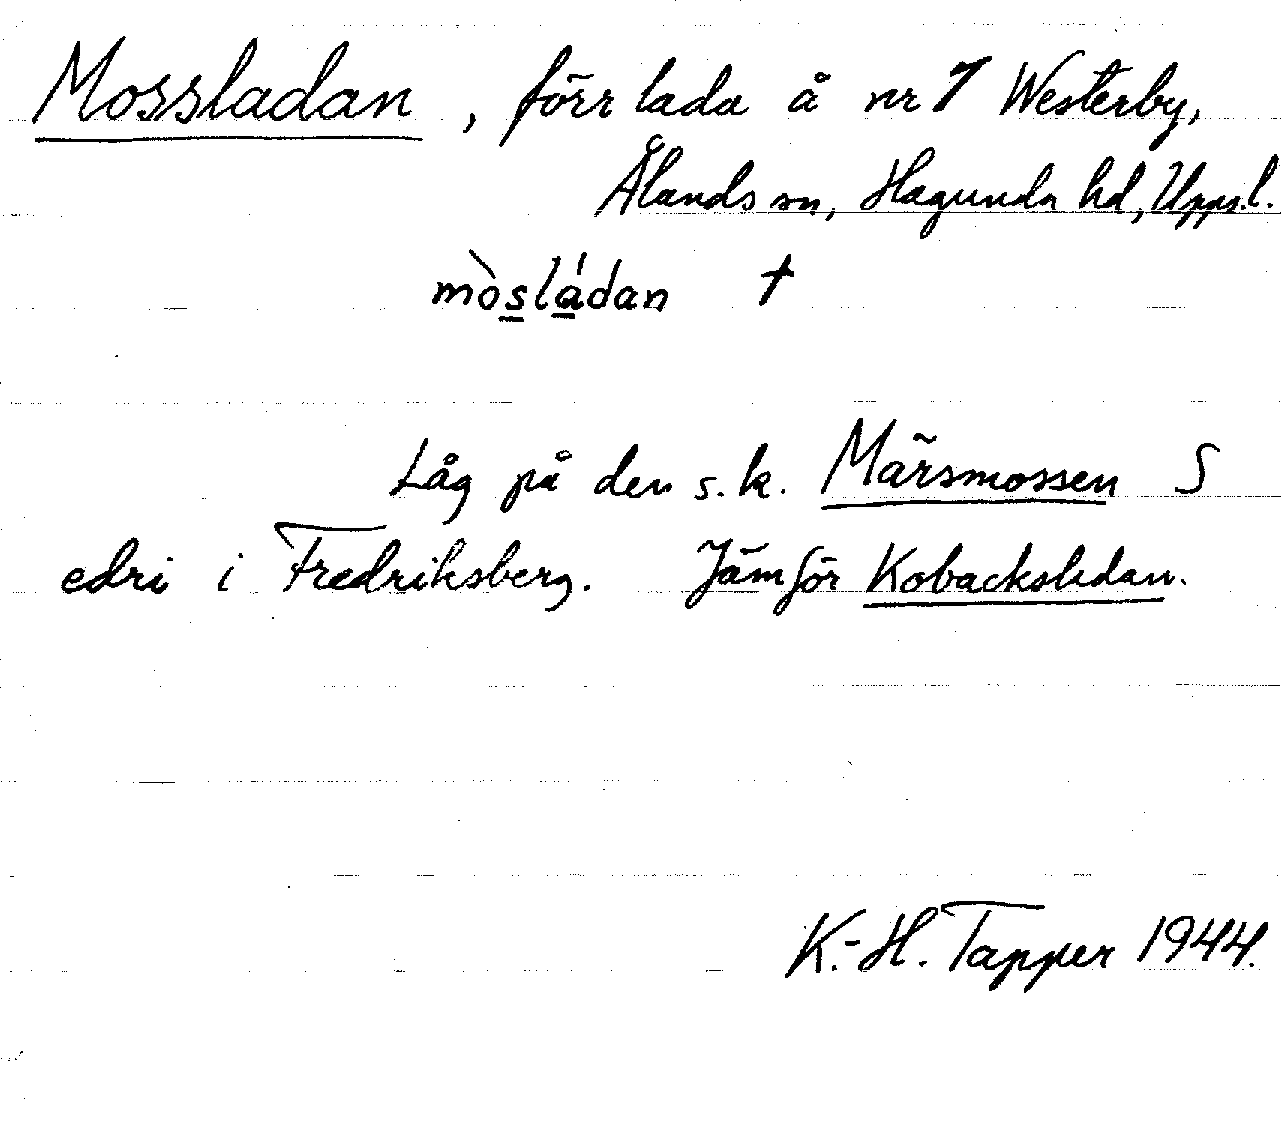 Mossladan, förr lada å nr 7 Westerby,
Ålands sn, Hagunda hd, Uppl.
mòsládan †
Låg på den s.k. Märsmossen S
edri i Fredriksberg. Jämför Kobacksladan.
K.-H. Tapper 1944.